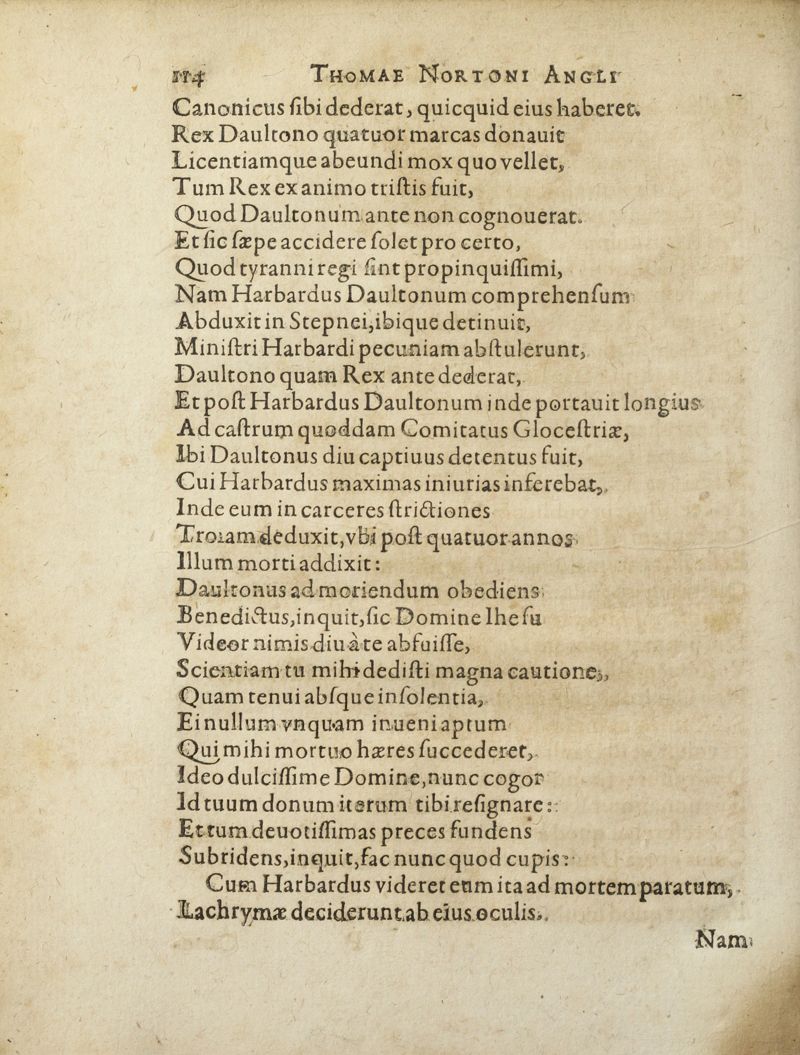 114 THOMAE NORTONI ANGLI
Canonicus ſibi dederat, quicquid eius haberet.
Rex Daultono quatuor marcas donauit
Licentiamque abeundi mox quo vellet,
Tum Rex ex animo triſtis fuit,
Quod Daultonum ante non cognouerat.
Et ſic ſæpe accidere ſolet pro certo,
Quod tyranni regi ſint propinquiſſimi,
Nam Harbardus Daultonum comprehenſum
Abduxit in Stepnei, ibique detinuit,
Miniſtri Harbardi pecuniam abſtulerunt,
Daultono quam Rex ante dederat,
Et poſt Harbardus Daultonum inde portauit longius
Ad caſtrum quoddam Comitatus Gloceſtriæ,
Ibi Daultonus diu captiuus detentus fuit,
Cui Harbardus maximas iniurias inferebat,
Inde eum in carceres ſtrictiones
Troiam deduxit, vbi poſt quatuor annos
Illum morti addixit:
Daultonus ad moriendum obediens
Benedictus, inquit, ſic Domine Iheſu
Videor nimis diu à te abfuiſſe,
Scientiam tu mihi dediſti magna cautione,
Quam tenui abſque inſolentia,
Ei nullum vnquam inueni aptum
Qui mihi mortuo hæres ſuccederet,
Ideo dulciſſime Domine, nunc cogor
Id tuum donum iterum tibi reſignare:
Et tum deuotiſſimas preces fundens
Subridens, inquit, fac nunc quod cupis:
Cum Harbardus videret eum ita ad mortem paratum,
Lachrymæ deciderunt ab eius oculis.
Nam